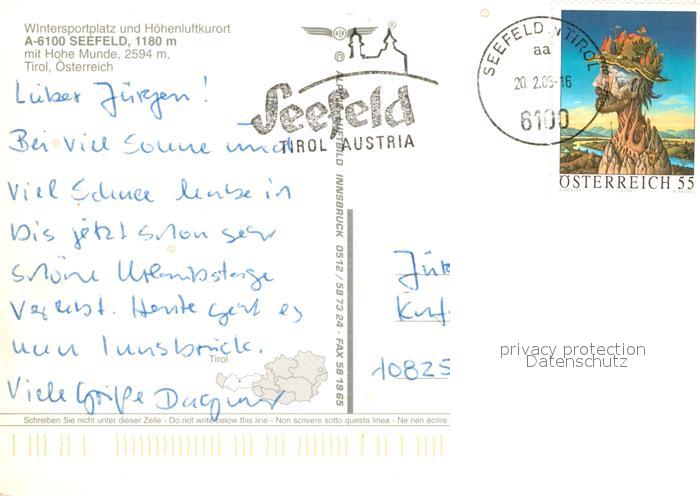 Wintersportplatz und Höhenluftkurort
A-6100 SEEFELD, 1180 m
mit Hohe Munde, 2594 m,
Tirol, Österreich
Lieber Jürgen!
Bei viel Sonne und
viel Schnee habe ich
bis jetzt schon sehr
schöne Urlaubstage
verlebt. Heute geht es
nach Innsbruck.
Viele Grüße Dagmar
Seefeld
TIROL AUSTRIA
SEEFELD IN TIROL
aa
20.2.05-16
6100
ÖSTERREICH 55
INNSBRUCK 0512 / 58 73 24 · FAX 58 19 65
Jür
10825
privacy protection
Datenschutz
Tirol
Schreiben Sie nicht unter dieser Zeile - Do not write below this line - Non scrivere sotto questa linea - Ne nen écrire